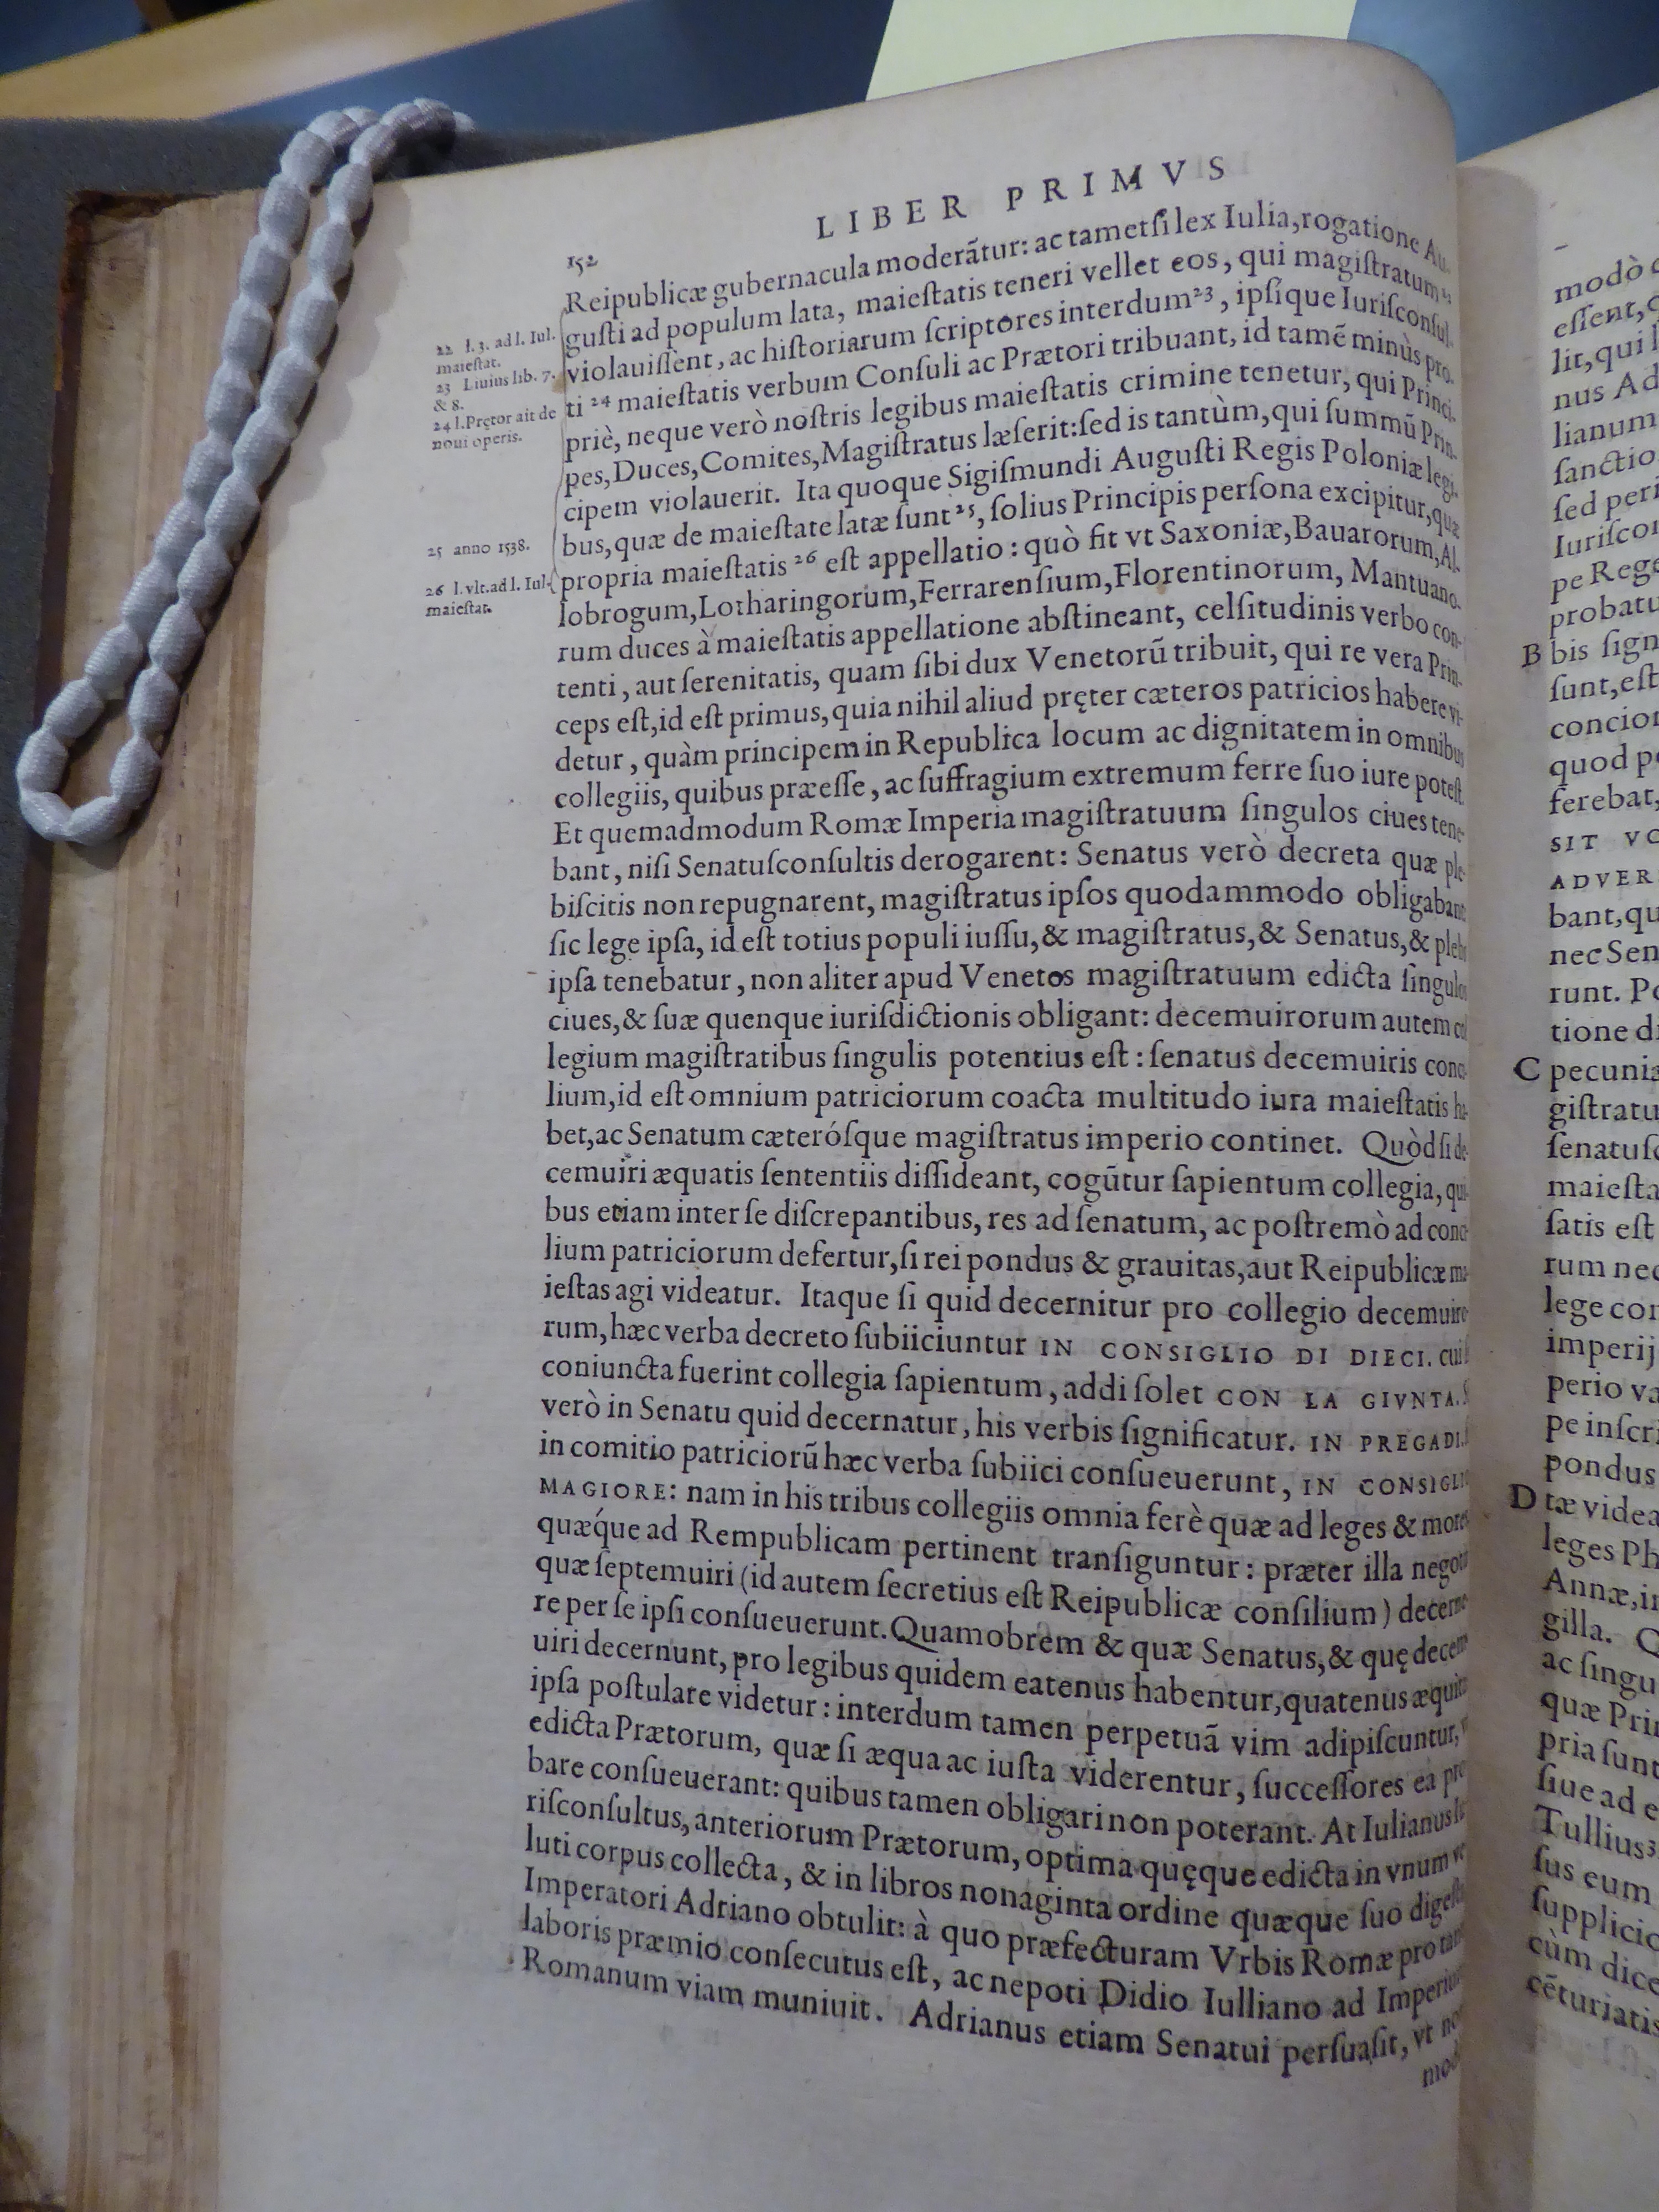 LIBER PRIMVS
152
Reipublicæ gubernacula moderãtur: ac tametſi lex Iulia, rogatione Au-
guſti ad populum lata, maieſtatis teneri vellet eos, qui magiſtratum 22
violauiſſent, ac hiſtoriarum ſcriptores interdum 23, ipſique Iuriſconſul-
ti 24 maieſtatis verbum Conſuli ac Prætori tribuant, id tamẽ minùs pro-
priè, neque verò noſtris legibus maieſtatis crimine tenetur, qui Princi-
pes, Duces, Comites, Magiſtratus læſerit: ſed is tantùm, qui ſummũ Prin-
cipem violauerit. Ita quoque Sigiſmundi Auguſti Regis Poloniæ legi-
bus, quæ de maieſtate latæ ſunt 25, ſolius Principis perſona excipitur, quæ
propria maieſtatis 26 eſt appellatio: quò fit vt Saxoniæ, Bauarorum, Al-
lobrogum, Lotharingorum, Ferrarenſium, Florentinorum, Mantuano-
rum duces à maieſtatis appellatione abſtineant, celſitudinis verbo con-
tenti, aut ſerenitatis, quam ſibi dux Venetorũ tribuit, qui re vera Prin-
ceps eſt, id eſt primus, quia nihil aliud pręter cæteros patricios habere vi-
detur, quàm principem in Republica locum ac dignitatem in omnibus
collegiis, quibus præeſſe, ac ſuffragium extremum ferre ſuo iure poteſt.
Et quemadmodum Romæ Imperia magiſtratuum ſingulos ciues tene-
bant, niſi Senatuſconſultis derogarent: Senatus verò decreta quæ ple-
biſcitis non repugnarent, magiſtratus ipſos quodammodo obligabant
ſic lege ipſa, id eſt totius populi iuſſu, & magiſtratus, & Senatus, & plebs
ipſa tenebatur, non aliter apud Venetos magiſtratuum edicta ſingulos
ciues, & ſuæ quenque iuriſdictionis obligant: decemuirorum autem col
legium magiſtratibus ſingulis potentius eſt: ſenatus decemuiris conci-
lium, id eſt omnium patriciorum coacta multitudo iura maieſtatis ha-
bet, ac Senatum cæteróſque magiſtratus imperio continet. Quòd ſi de-
cemuiri æquatis ſententiis diſſideant, cogũtur ſapientum collegia, qui-
bus etiam inter ſe diſcrepantibus, res ad ſenatum, ac poſtremò ad conci-
lium patriciorum defertur, ſi rei pondus & grauitas, aut Reipublicæ ma-
ieſtas agi videatur. Itaque ſi quid decernitur pro collegio decemuiro-
rum, hæc verba decreto ſubiiciuntur IN CONSIGLIO DI DIECI. cui ſi
coniuncta fuerint collegia ſapientum, addi ſolet CON LA GIVNTA. S
verò in Senatu quid decernatur, his verbis ſignificatur. IN PREGADI.
in comitio patriciorũ hæc verba ſubiici conſueuerunt, IN CONSIGLI
MAGIORE: nam in his tribus collegiis omnia ferè quæ ad leges & mores
quæque ad Rempublicam pertinent tranſiguntur: præter illa negot
quæ ſeptemuiri (id autem ſecretius eſt Reipublicæ conſilium) decerne-
re per ſe ipſi conſueuerunt. Quamobrem & quæ Senatus, & quę decem
uiri decernunt, pro legibus quidem eatenus habentur, quatenus æquit
ipſa poſtulare videtur: interdum tamen perpetuã vim adipiſcuntur,
edicta Prætorum, quæ ſi æqua ac iuſta viderentur, ſucceſſores ea pro
bare conſueuerant: quibus tamen obligari non poterant. At Iulianus Iu
riſconſultus, anteriorum Prætorum, optima quęque edicta in vnum ve
luti corpus collecta, & in libros nonaginta ordine quæque ſuo digeſt
Imperatori Adriano obtulit: à quo præfecturam Vrbis Romæ pro tan
laboris præmio conſecutus eſt, ac nepoti Didio Iulliano ad Imperium
Romanum viam muniuit. Adrianus etiam Senatui perſuaſit, vt no
mod
22 l. 3. ad l. Iul.
maieſtat.
23 Liuius lib. 7.
& 8.
24 l. Prętor ait de
noui operis.
25 anno 1538.
26 l. vlt. ad l. Iul.
maieſtat.
modò
eſſent,
lit, qui
nus Ad
lianum
ſanctio
ſed peri
Iuriſcon
pe Rege
probatu
B bis ſign
ſunt, eſt
concion
quod po
ferebat,
SIT VO
ADVER
bant, qu
nec Sen
runt. Po
tione di
C pecunia
giſtratu
ſenatuſc
maieſta
ſatis eſt
rum nec
lege con
imperij
perio va
pe inſcri
pondus
D tæ videa
leges Ph
Annæ, in
gilla. Q
ac ſingu
quæ Prin
pria ſunt
ſiue ad e
Tullius 3
ſus eum
ſupplicio
cùm dice
cẽturiatis